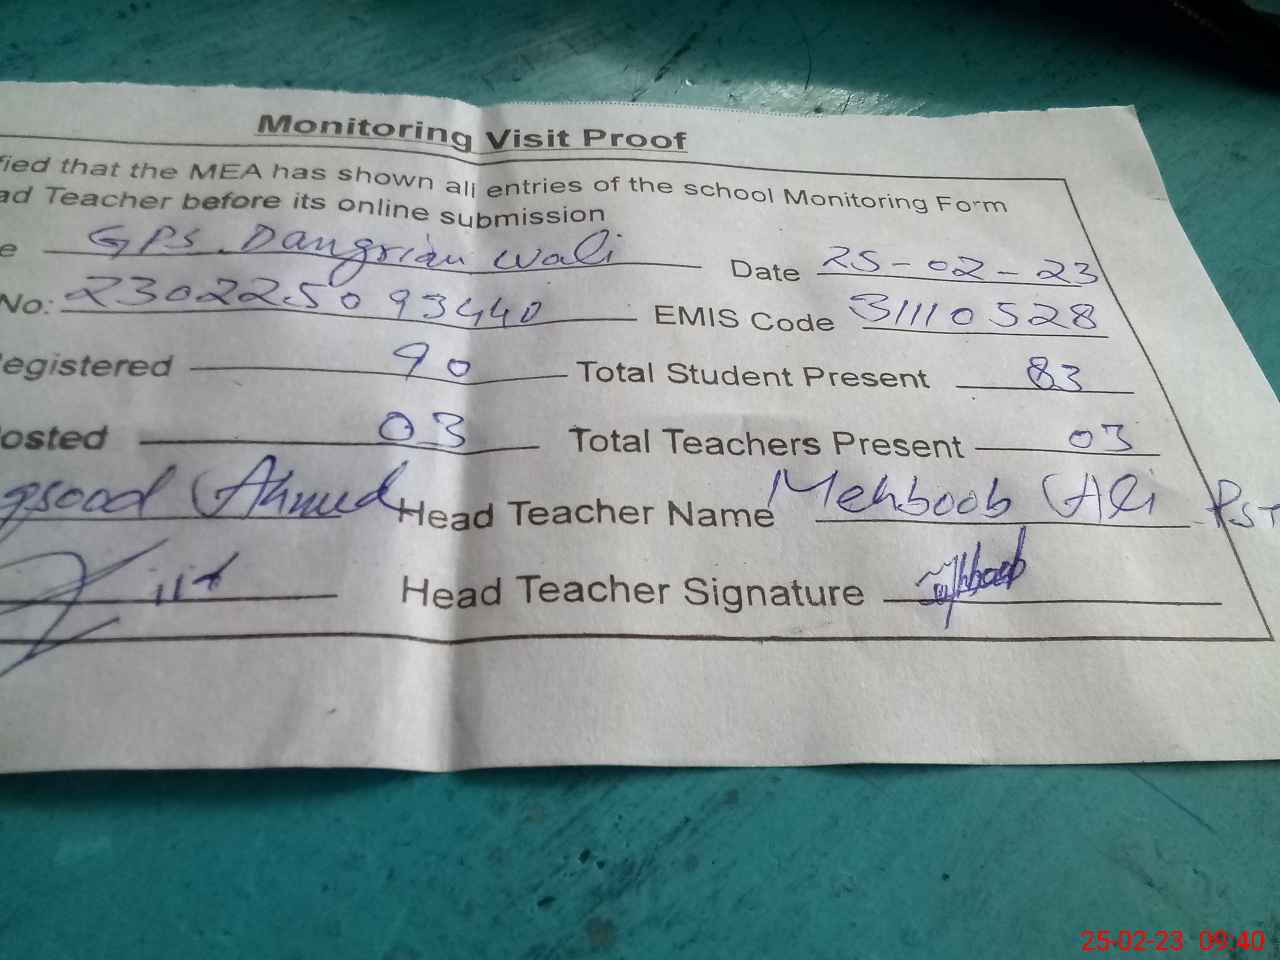 Monitoring Visit Proof
fied that the MEA has shown all entries of the school Monitoring Form
ad Teacher before its online submission
e GPS Dangrian wali Date 25-02-23
No: 230225093440 EMIS Code 31110528
egistered 90 Total Student Present 83
osted 03 Total Teachers Present 03
qsood Ahmed Head Teacher Name Mehboob Ali PST
Head Teacher Signature
25-02-23 09:40